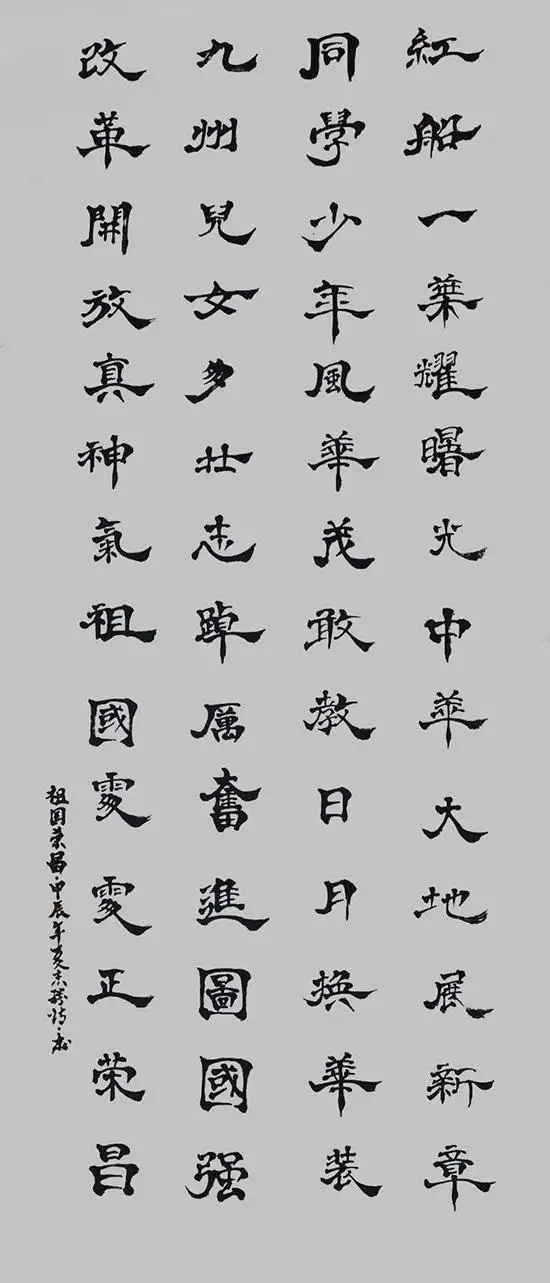 紅船一葉耀曙光中華大地展新章
同學少年風華茂敢教日月換華裝
九州兒女多壯志踔厲奮進圖國强
改革開放真神氣祖國雯雯正荣昌
祖国荣昌甲辰年夏